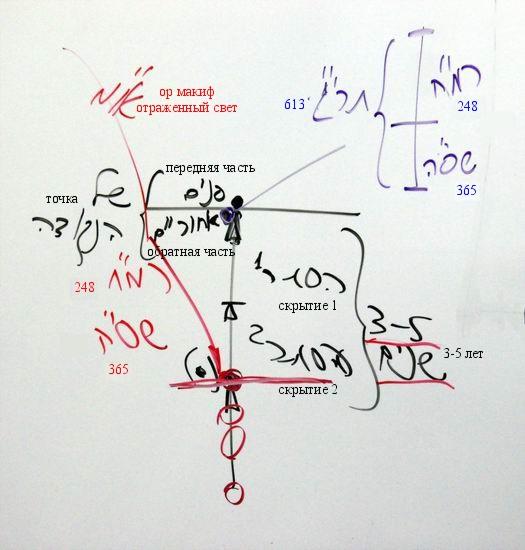 או"מ
ор макиф
отраженный свет
613
תרי"ג
רמ"ח
248
שס"ה
365
передняя часть
פנים
точка
של
הנקודה
אחוריים
обратная часть
248
רמ"ח
שס"ה
365
הסתרה 1
скрытие 1
2
скрытие 2
3-5
שנים
3-5 лет